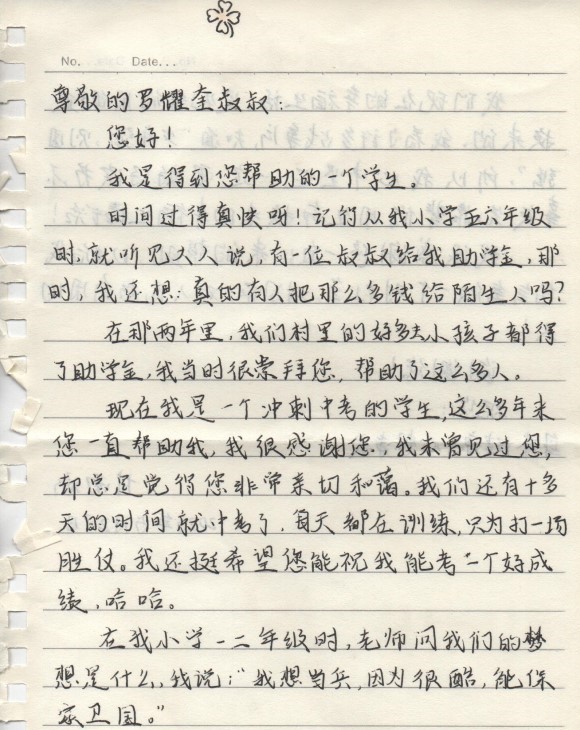 No. Date...
尊敬的罗耀奎叔叔:
您好!
我是得到您帮助的一个学生。
时间过得真快呀!记得从我小学五六年级
时,就听见大人说,有一位叔叔给我助学金,那
时,我还想:真的有人把那么多钱给陌生人吗?
在那两年里,我们村里的好多小孩子都得
了助学金,我当时很崇拜您,帮助了这么多人。
现在我是一个冲刺中考的学生,这么多年来
您一直帮助我,我很感谢您。我未曾见过您,
却总是觉得您非常亲切和蔼。我们还有十多
天的时间就中考了,每天都在训练,只为打一场
胜仗。我还挺希望您能祝我能考一个好成
绩,哈哈。
在我小学一二年级时,老师问我们的梦
想是什么,我说:“我想当兵,因为很酷,能保
家卫国。”